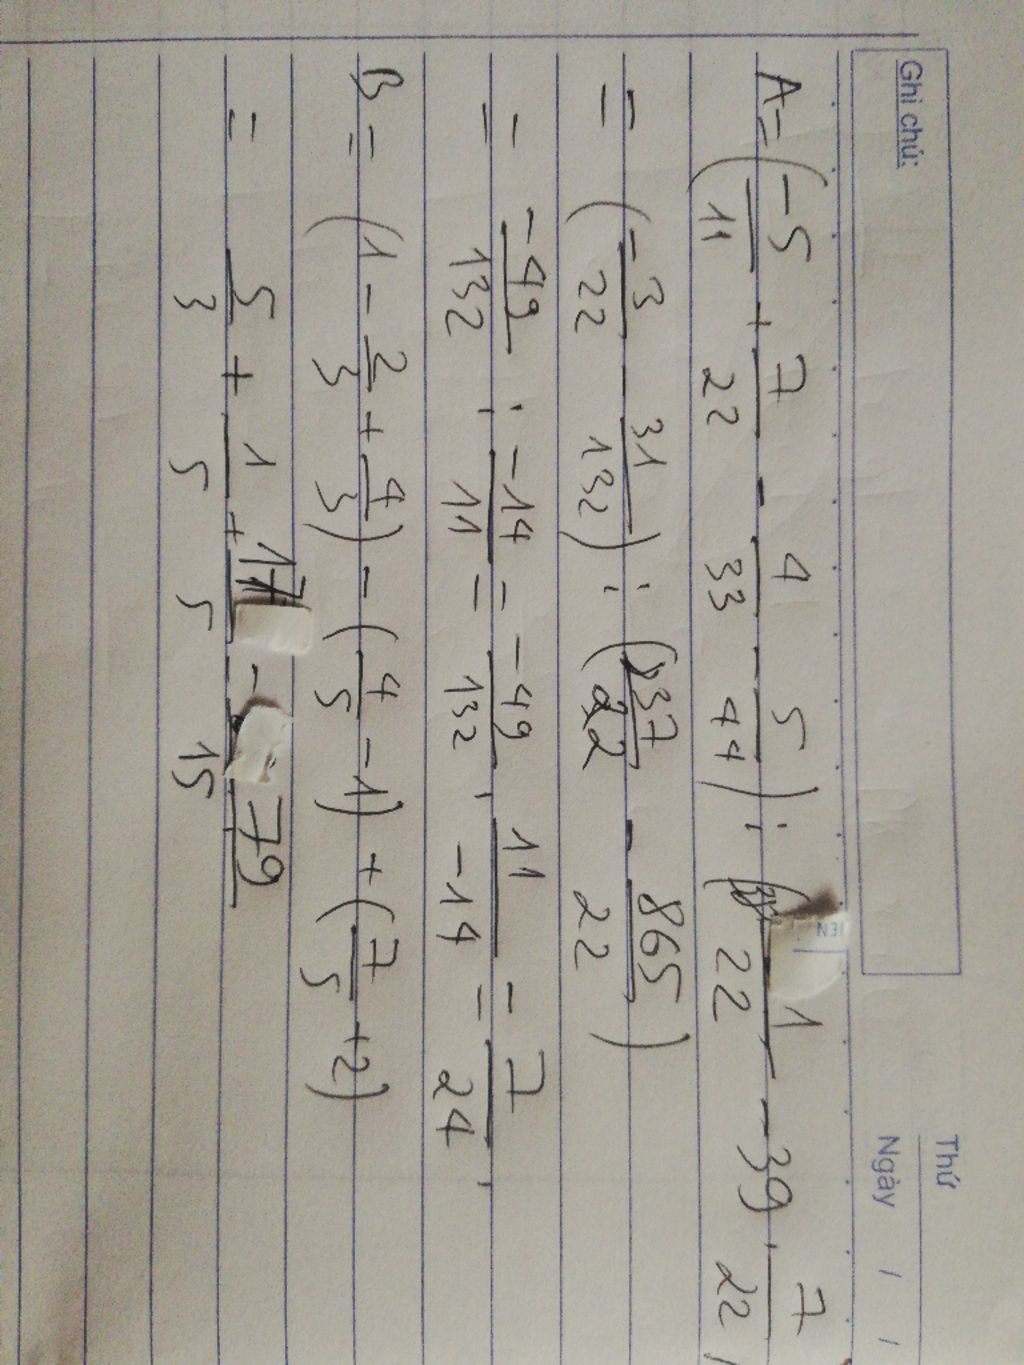 Thứ
Ghi chú: Ngày / /
A = (-5/11 + 7/22 - 4/33 - 5/44) : ( 1/22 - 39 . 7/22)
= (-3/22 - 31/132) : (837/22 - 865/22)
= -49/132 : -14/11 = -49/132 . 11/-14 = 7/24 .
B = (1 - 2/3 + 4/3) - (4/5 - 1) + (7/5 + 2)
= 5/3 + 1/5 + 17/5 = 79/15